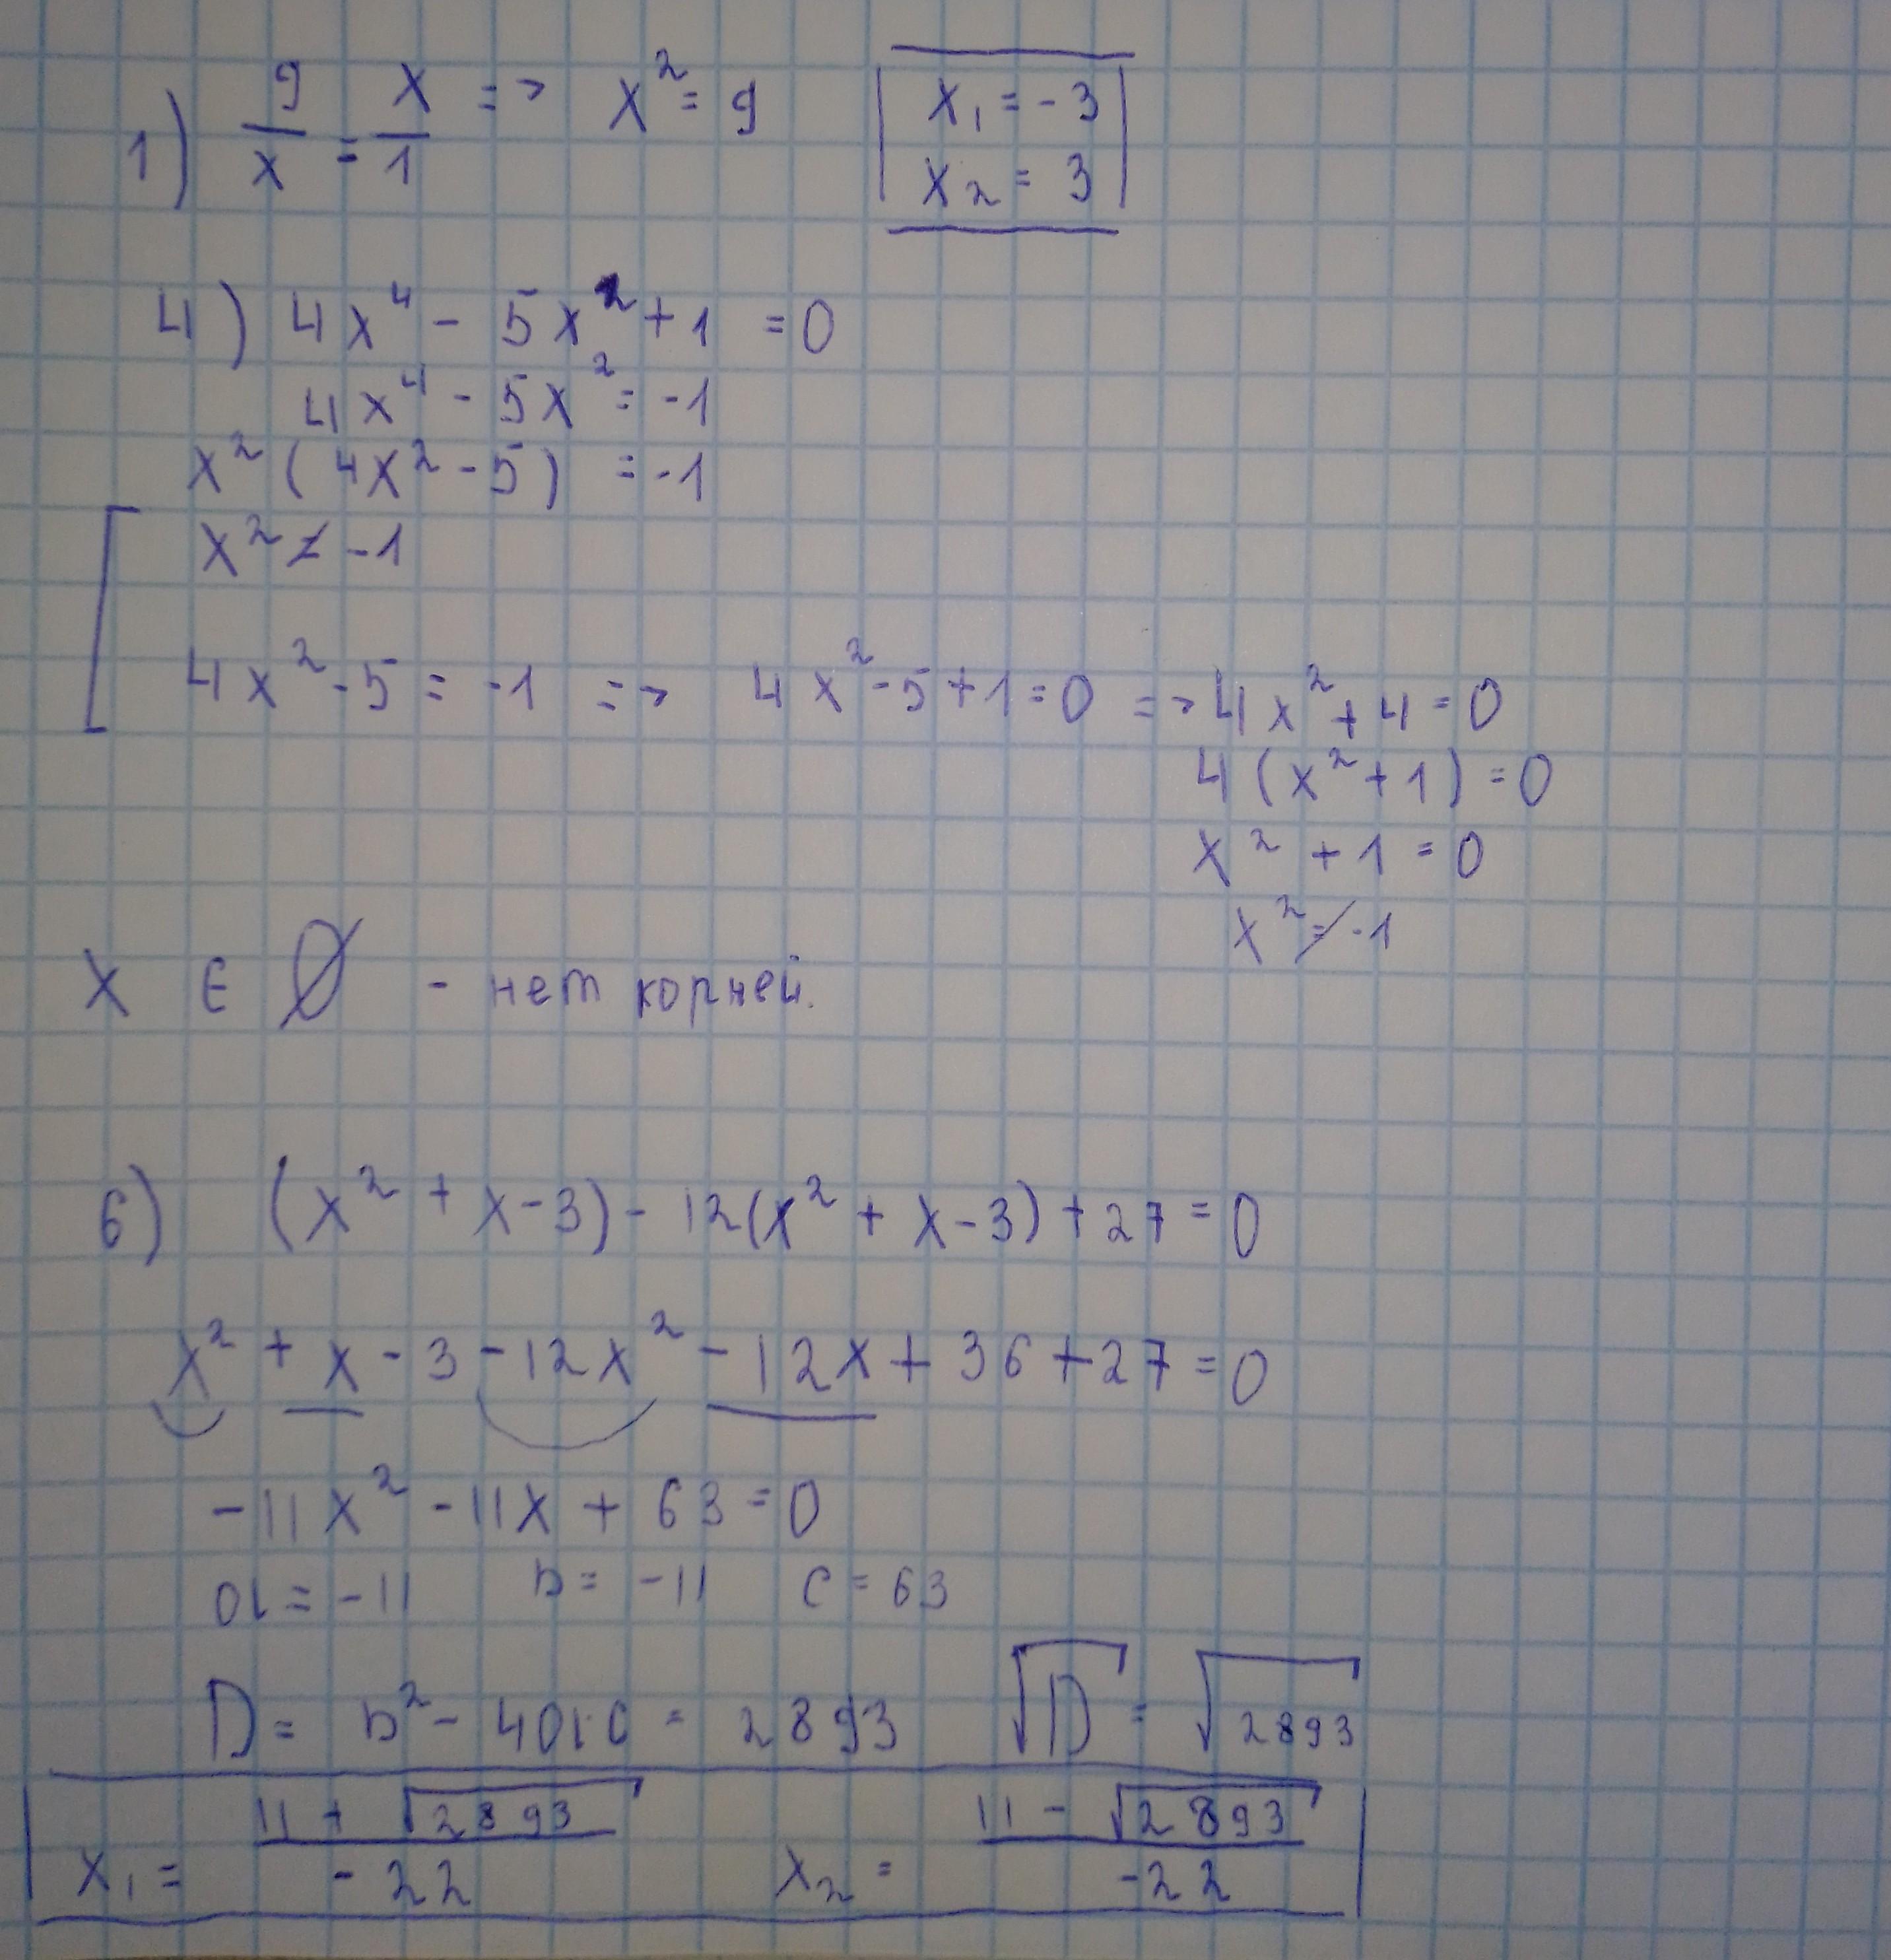 1) 9/x = x/1 => x² = 9 x₁ = -3
x₂ = 3
4) 4x⁴ - 5x² + 1 = 0
4x⁴ - 5x² = -1
x² (4x² - 5) = -1
x² ≠ -1
4x² - 5 = -1 => 4x² - 5 + 1 = 0 => 4x² + 4 = 0
4(x² + 1) = 0
x² + 1 = 0
x² ≠ -1
x ∈ ∅ - нет корней.
6) (x² + x - 3) - 12(x² + x - 3) + 27 = 0
x² + x - 3 - 12x² - 12x + 36 + 27 = 0
-11x² - 11x + 63 = 0
a = -11 b = -11 c = 63
D = b² - 4a·c = 2893 √D = √2893
x₁ = (11 + √2893)/-22 x₂ = (11 - √2893)/-22